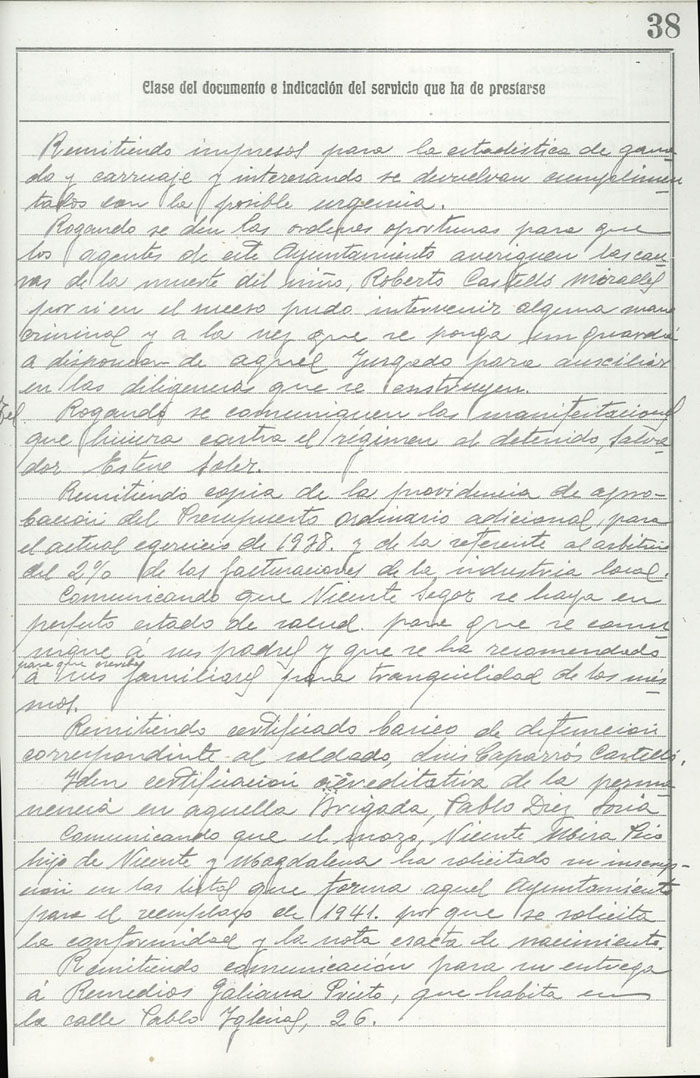 38
Clase del documento e indicación del servicio que ha de prestarse
Remitiendo impresos para la estadistica de gana
do y carruaje y interesando se devuelvan cumplimen
tados con la posible urgencia.
Rogando se den las ordenes oportunas para que
los agentes de este Ayuntamiento averiguen las cau
sas de la muerte del niño, Roberto Castelló Miralles
por si en el suceso pudo intervenir alguna mano
criminal y a la vez que se ponga un guardia
a disposicion de aquel Juzgado para auxiliar
en las diligencias que se instruyen.
Rogando se comuniquen las manifestaciones
que hiciera contra el régimen el detenido, Salva
dor Esteve Soler.
Remitiendo copia de la providencia de apro-
bación del Presupuesto ordinario adicional, para
el actual egercicio de 1938. y de la referente al arbitrio
del 2% de las facturaciones de la industria local.
Comunicando que Vicente Segor se haya en
perfecto estado de salud. para que se comu
nique á sus padres y que se ha recomendado
para que escriba
á sus familiares para tranquilidad de los mis
mos.
Remitiendo certificado de defuncion
correspondiente al soldado, Luis Caparrós Castelló.
Iden certificacion acreditativa de la perma
nencia en aquella Brigada, Pablo Diez Soria
Comunicando que el mozo, Vicente Mira Picó
hijo de Vicente y Magdalena ha solicitado su inscrip-
ción en las listas que forma aquel Ayuntamiento
para el reemplazo de 1941. por que se solicita
la conformidad y la nota exacta de nacimiento.
Remitiendo comunicación para su entrega
á Remedios Galiana Prieto, que habita en
la calle Pablo Iglesias, 26.